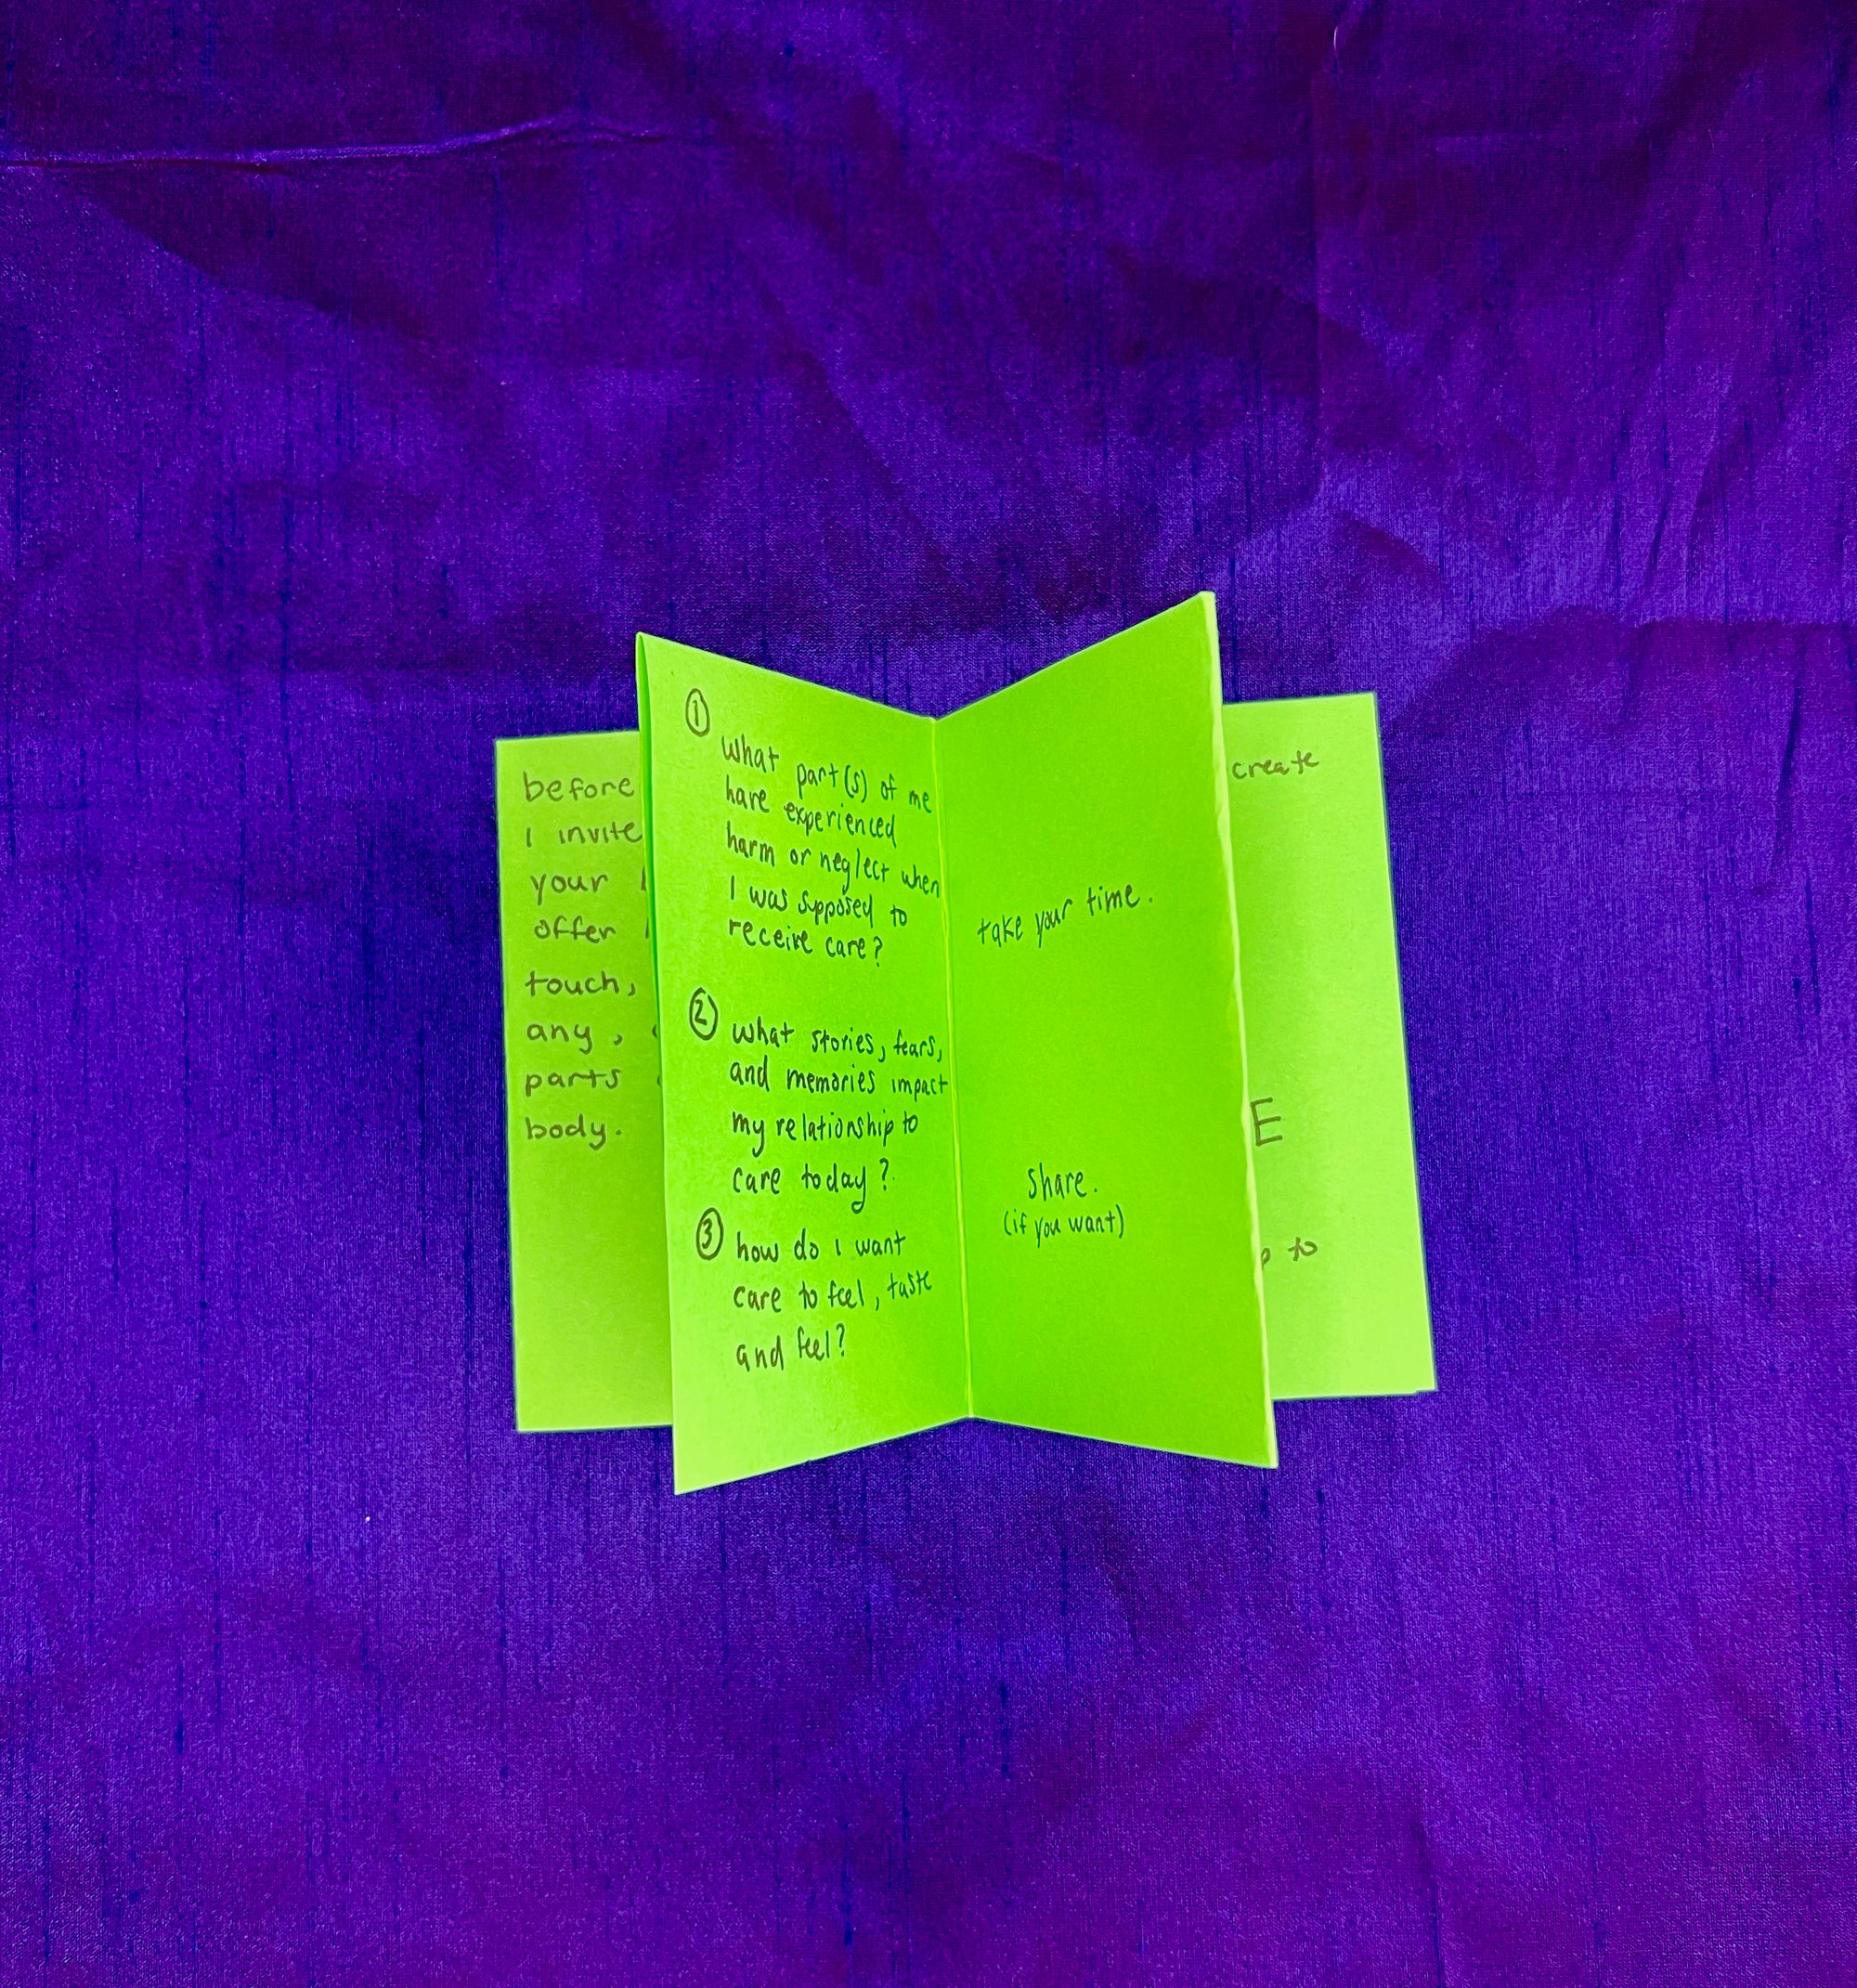 before
I invite
your
offer
touch,
any,
parts
body.
①
what part(s) of me
have experienced
harm or neglect when
I was spposed to
receive care?
②
what stories, fears,
and memories impact
my relationship to
care today?
③
how do i want
care to feel, taste
and feel?
take your time.
share.
(if you want)
create
E
to